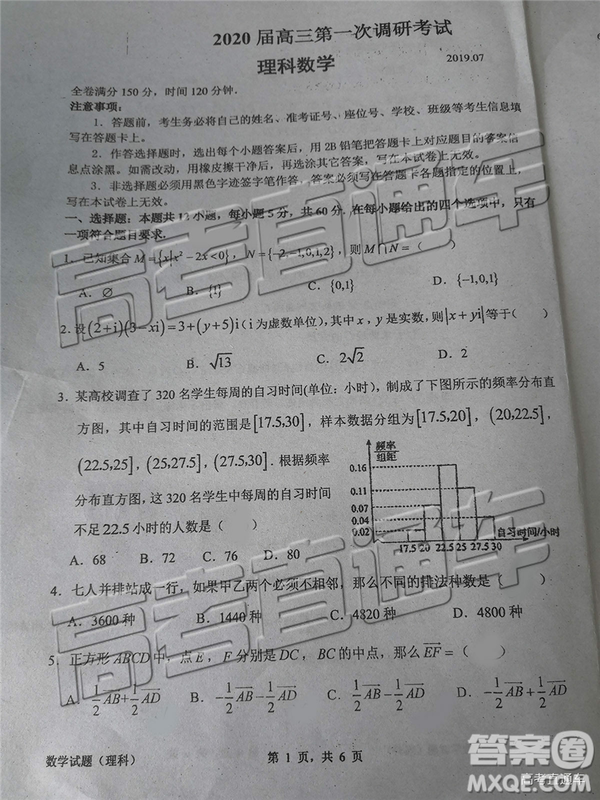 2020 届高三第一次调研考试
理科数学
2019.07
全卷满分 150 分，时间 120 分钟.
注意事项：
1．答题前，考生务必将自己的姓名、准考证号、座位号、学校、班级等考生信息填
写在答题卡上。
2．作答选择题时，选出每个小题答案后，用 2B 铅笔把答题卡上对应题目的答案信
息点涂黑。如需改动，用橡皮擦干净后，再选涂其它答案，写在本试卷上无效。
3．非选择题必须用黑色字迹签字笔作答，答案必须写在答题卡各题指定的位置上，
写在本试卷上无效。
一、选择题：本题共 12 小题，每小题 5 分，共 60 分．在每小题给出的四个选项中，只有
一项符合题目要求．
1．已知集合 M={x|x²−2x<0}，N={−2,−1,0,1,2}，则 M∩N=（ ）
A．∅ B．{1} C．{0,1} D．{−1,0,1}
2．设(2+i)(3−xi)=3+(y+5)i（i 为虚数单位），其中 x，y 是实数，则|x+yi|等于（ ）
A．5 B．√13 C．2√2 D．2
3．某高校调查了 320 名学生每周的自习时间(单位：小时)，制成了下图所示的频率分布直
方图，其中自习时间的范围是[17.5,30]，样本数据分组为[17.5,20]，(20,22.5]，
(22.5,25]，(25,27.5]，(27.5,30]．根据频率
分布直方图，这 320 名学生中每周的自习时间
不足 22.5 小时的人数是（ ）
A．68 B．72 C．76 D．80
频率
组距
0.16
0.10
0.08
0.04
0.02
17.5 20 22.5 25 27.5 30
自习时间/小时
4．七人并排站成一行，如果甲乙两个必须不相邻，那么不同的排法种数是（ ）
A．3600 种 B．1440 种 C．4820 种 D．4800 种
5．正方形 ABCD 中，点 E，F 分别是 DC，BC 的中点，那么 EF=（ ）
A．1/2 AB+1/2 AD B．−1/2 AB−1/2 AD C．−1/2 AB+1/2 AD D．1/2 AB−1/2 AD
数学试题（理科） 第 1 页，共 6 页
高考直通车
高考直通车
高考直通车
答案卷
高考直通车
MXQE.COM